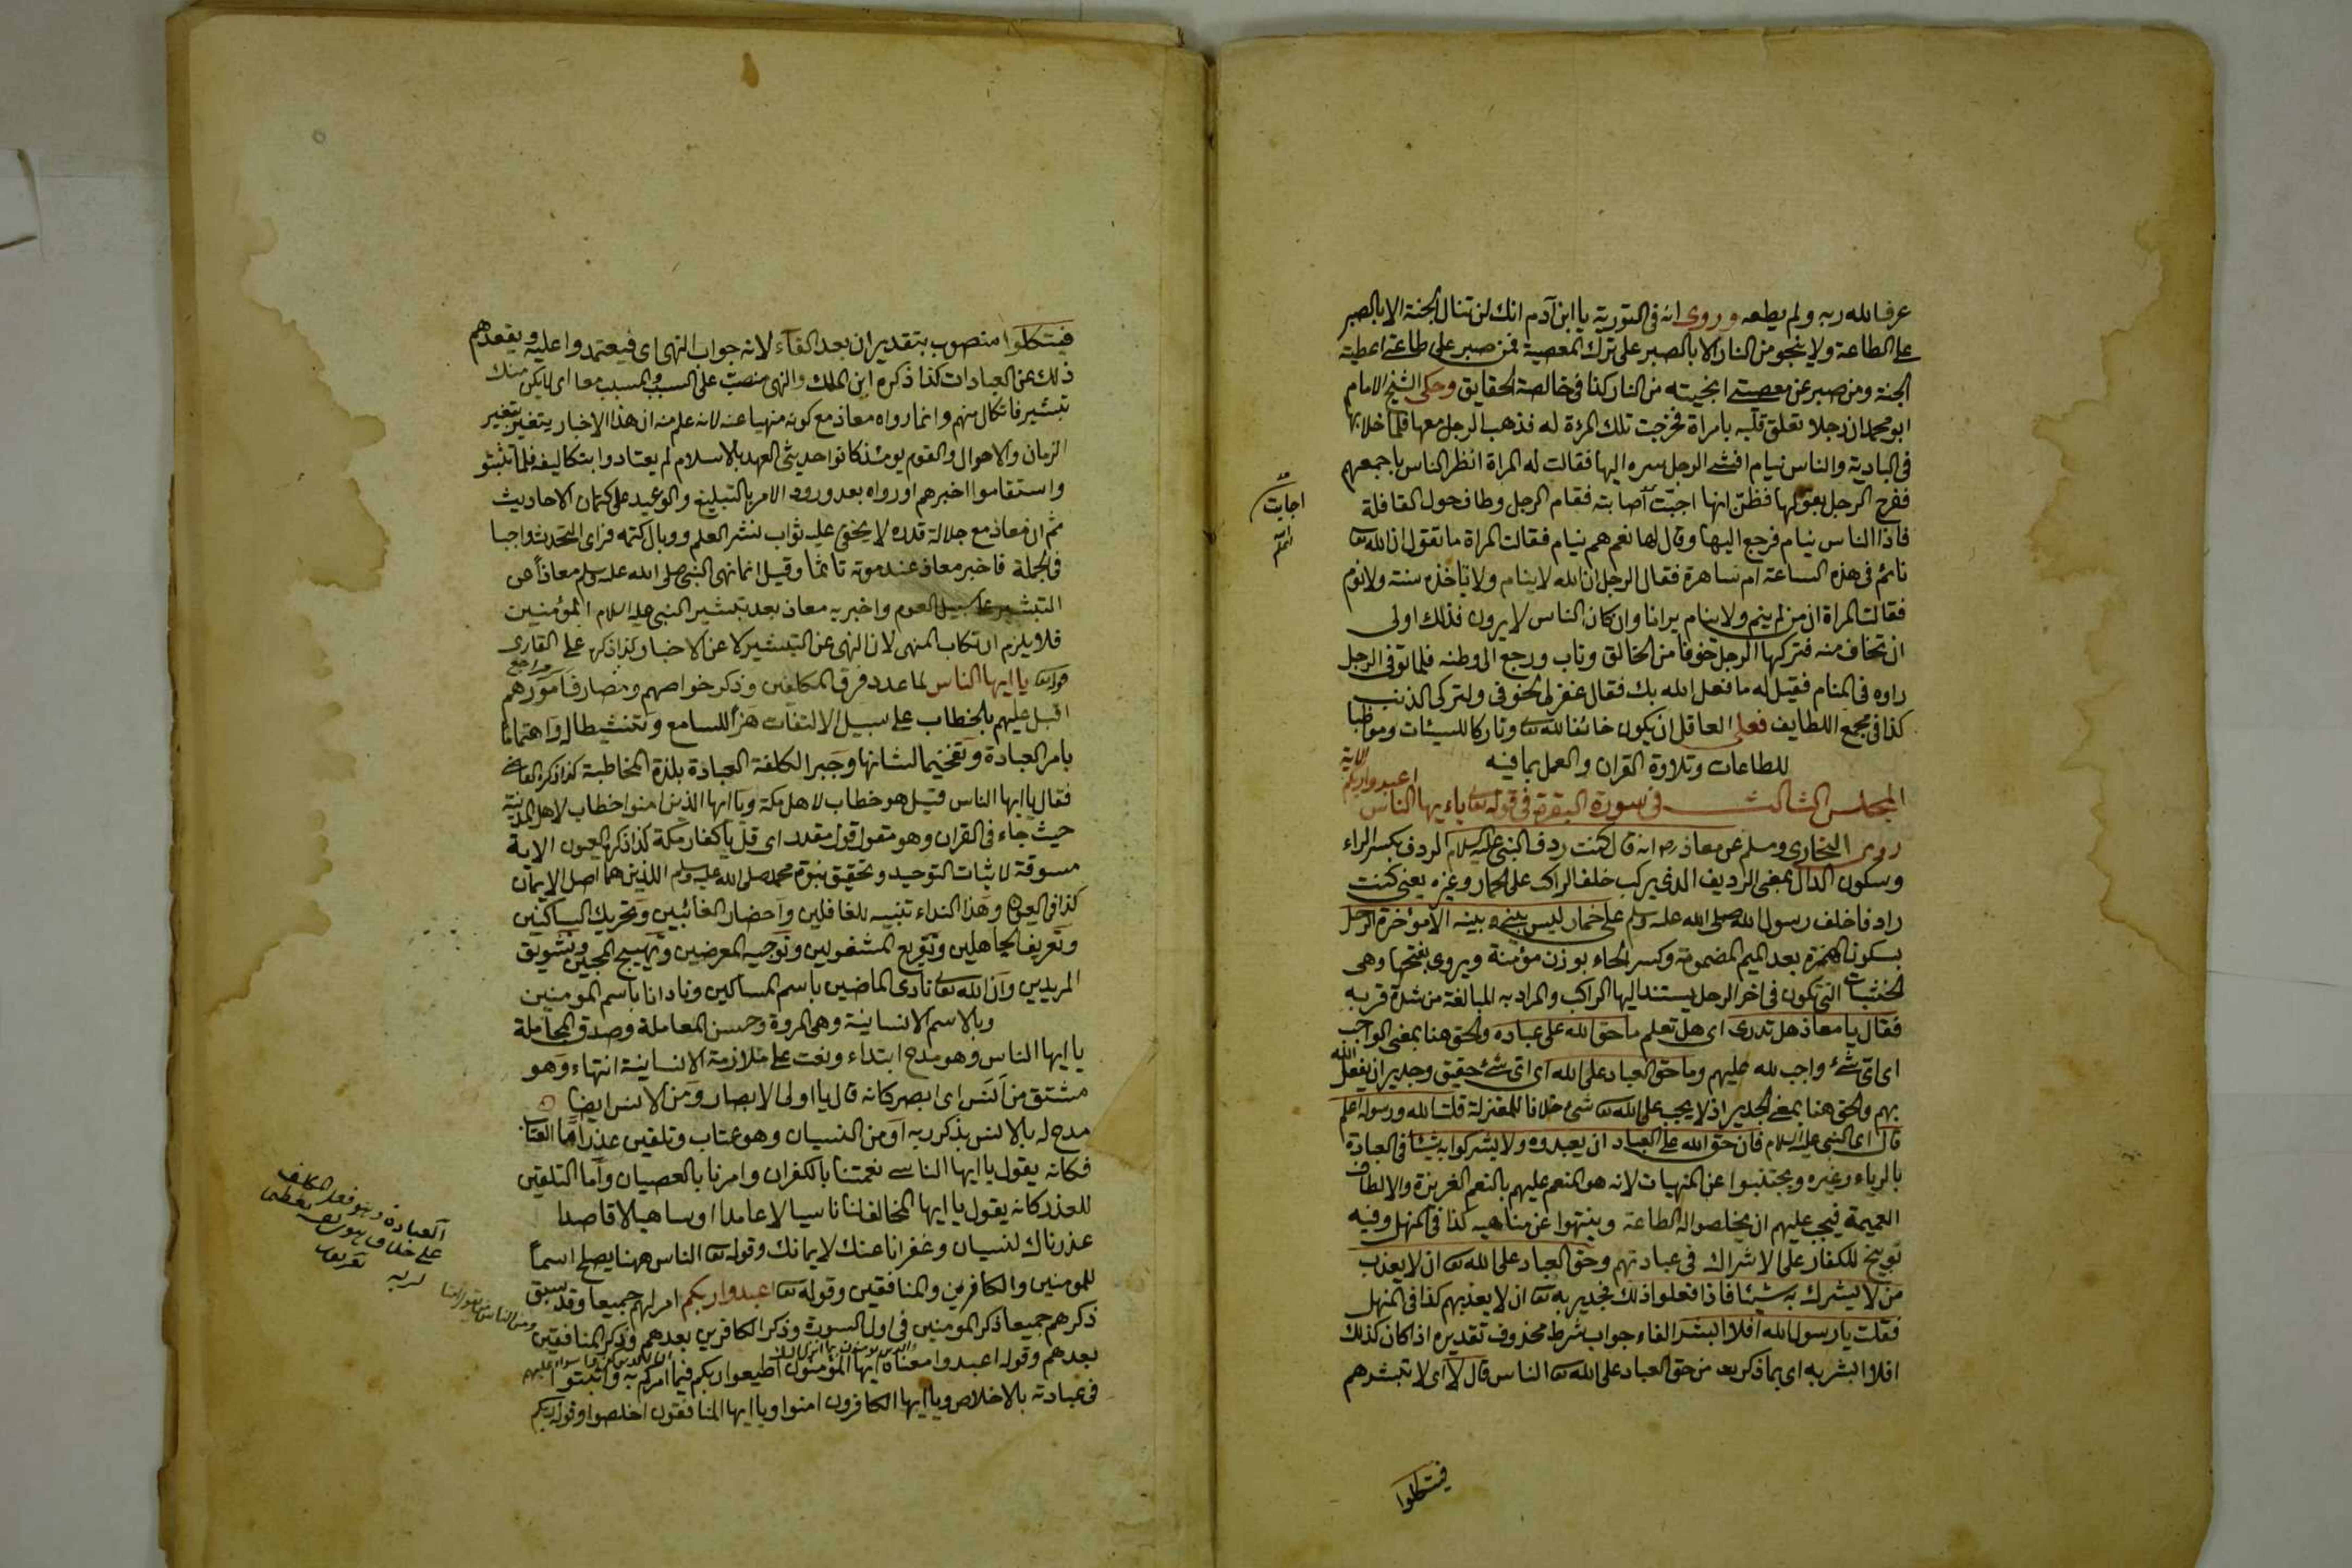 عرف الله ربه ولم يطعه وروى انه فى التورية يا ابن آدم انك لن تنال الجنة الا بالصبر
على الطاعة ولا ينجو من النار الا بالصبر على ترك المعصية فمن صبر على طاعته اعطيته
الجنة ومن صبر عن معصيتى انجيته من النار كذا فى خالصة الحقايق وحكى الشيخ الامام
ابو محمد ان رجلا تعلق قلبه بامراة فخرجت تلك المرءة له فذهب الرجل معها فلما خلا بها
فى البادية والناس نيام افشى الرجل سره اليها فقالت له المراة انظر الناس باجمعهم
ففرح الرجل بقولها فظن انها اجبت اصابته فقام الرجل وطاف حول القافلة
اجابت
فاذا الناس نيام فرجع اليها وقال لها نعم هم نيام فقالت المراة ما تقول ان الله تعا
نائم فى هذه الساعة ام ساهرة فقال الرجل ان الله لا ينام ولا تاخذه سنة ولا نوم
فقالت المراة ان من لم ينم ولا ينام يرانا وان كان الناس لا يرون فذلك اولى
ان تخاف منه فتركها الرجل خوفا من الخالق وتاب ورجع الى وطنه فلما توفى الرجل
راوه فى المنام فقيل له ما فعل الله بك فقال غفر لى لخوفى ولتركى الذنب
كذا فى مجمع اللطايف فعلى العاقل ان يكون خائفا لله تعا وتاركا للسيئات ومواظبا
للطاعات وتلاوة القران والعمل بما فيه
المجلس الثالث فى سورة البقرة فى قوله تعا ياءيها الناس اعبدوا ربكم الاية
روى البخارى ومسلم عن معاذ رض انه قال كنت ردف النبى عليه السلام الردف بكسر الراء
وسكون الدال بمعنى الرديف الذى يركب خلف الراكب على الحمار وغيره يعنى كنت
رادفا خلف رسول الله صلى الله عليه وسلم على حمار ليس بينى وبينه الا مؤخرة الرحل
بسكون الهمزة بعد الميم المضمومة وكسر الخاء بوزن مؤمنة ويروى بفتحها وهى
الخشبات التى تكون فى اخر الرحل يستند اليها الراكب والمراد به المبالغة من شدة قربه
فقال يا معاذ هل تدرى اى هل تعلم ما حق الله على عباده والحق هنا بمعنى الواجب
اى اى شئ واجب لله عليهم وما حق العباد على الله اى اى شئ حقيق وجدير ان يفعل الله
بهم والحق هنا بمعنى الجدير اذ لا يجب على الله تعا شئ خلافا للمعتزلة قلت الله ورسوله اعلم
قال اى النبى عليه السلام فان حق الله على العباد ان يعبدوه ولا يشركوا به شيئا فى العبادة
بالرياء وغيره ويجتنبوا عن المنهيات لانه هو المنعم عليهم بالنعم الغزيرة والالطاف
العميمة فيجب عليهم ان يخلصوا له الطاعة وينتهوا عن مناهيه كذا فى المنهل وفيه
توبيخ للكفار على الاشراك فى عبادتهم وحق العباد على الله تعا ان لا يعذب
من لا يشرك به شيئا فاذا فعلوا ذلك فجدير به تعا ان لا يعذبهم كذا فى المنهل
فقلت يا رسول الله افلا ابشر الفاء جواب شرط محذوف تقديره اذا كان كذلك
افلا ابشر به اى بما ذكر بعد من حق العباد على الله تعا الناس قال لا اى لا تبشرهم
فيتكلوا
فيتكلوا منصوب بتقدير ان بعد الفاء لانه جواب النهى اى فيعتمدوا عليه ويقعدهم
ذلك عن العبادات كذا ذكره ابن الملك والنهى منصب على السبب والمسبب معا اى لا يكن منك
تبشير فاتكال منهم وانما رواه معاذ مع كونه منهيا عنه لانه علم منه ان هذا الاخبار يتغير بتغير
الزمان والاحوال والقوم يومئذ كانوا حديثى العهد بالاسلام لم يعتادوا بتكاليفه فلما تثبتو
واستقاموا اخبرهم او رواه بعد ورود الامر بالتبليغ والوعيد على كتمان الاحاديث
ثم ان معاذ مع جلالة قدره لا يخفى عليه ثواب نشر العلم ووبال كتمه فراى التحدث واجبا
فى الجملة فاخبر معاذ عند موته تاثما وقيل انما نهى النبى صلى الله عليه وسلم معاذا عن
التبشير على سبيل العموم واخبر به معاذ بعد تبشير النبى عليه السلام المؤمنين
فلا يلزم ارتكاب المنهى لان النهى عن التبشير لا عن الاخبار كذا ذكره على القارى
قوله تعا يا ايها الناس لما عدد فرق المكلفين وذكر خواصهم ومصارف امورهم
اقبل عليهم بالخطاب على سبيل الالتفات هزا للسامع وتنشيطا له واهتماما
بامر العبادة وتفخيما لشانها وجبرا لكلفة العبادة بلذة المخاطبة كذا ذكره القاضى
فقال يا ايها الناس قيل هو خطاب لاهل مكة ويا ايها الذين امنوا خطاب لاهل المدينة
حيث جاء فى القران وهو مقول قول مقدر اى قل يا كفار مكة كذا ذكره العيون الاية
مسوقة لاثبات التوحيد وتحقيق نبوة محمد صلى الله عليه وسلم اللذين هما اصل الايمان
كذا فى العيون وهذا النداء تنبيه للغافلين واحضار الغائبين وتحريك الساكنين
وتعريف الجاهلين وتفريع المشغولين وتوجيه المعرضين وتهييج المحبين وتشويق
المريدين وان الله تعا نادى الماضين باسم المساكين ونادانا باسم المومنين
وبالاسم الانسانية وهى المروة وحسن المعاملة وصدق المجاملة
يا ايها الناس وهو مدح ابتداء ونعت على ملازمة الانسانية انتهاء وهو
مشتق من انس اى ابصر كانه قال يا اولى الابصار ومن الانس ايضا
مدح له بالانس بذكر ربه او من النسيان وهو عتاب وتلقين عذر اما العتاب
فكانه يقول يا ايها الناسى نعمتنا بالكفران وامرنا بالعصيان واما التلقين
للعذر كانه يقول يا ايها المخالف لنا ناسيا لا عامدا او ساهيا لا قاصدا
عذرناك لنسيان وغفرانا عنك لايمانك وقوله تعا الناس ههنا يصلح اسما
للمومنين والكافرين والمنافقين وقوله تعا اعبدوا ربكم امر لهم جميعا وقد سبق
ذكرهم جميعا ذكر المومنين فى اول السورة وذكر الكافرين بعدهم وذكر المنافقين
بعدهم وقوله اعبدوا معناه ايها المؤمنون اطيعوا ربكم فيما امركم به واثبتوا
فى عبادته بالاخلاص ويا ايها الكافرون امنوا ويا ايها المنافقون اخلصوا وقوله ربكم
العبادة وهو فعل المكلف
على خلاف هوى نفسه تعظيما
لربه